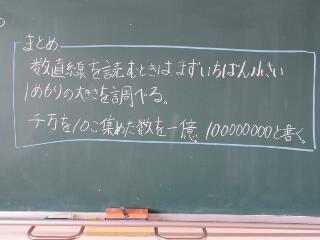 まとめ
数直線を読むときはまずいちばん小さい
1めもりの大きさを調べる。
千万を10こ集めた数を一億 100000000と書く。